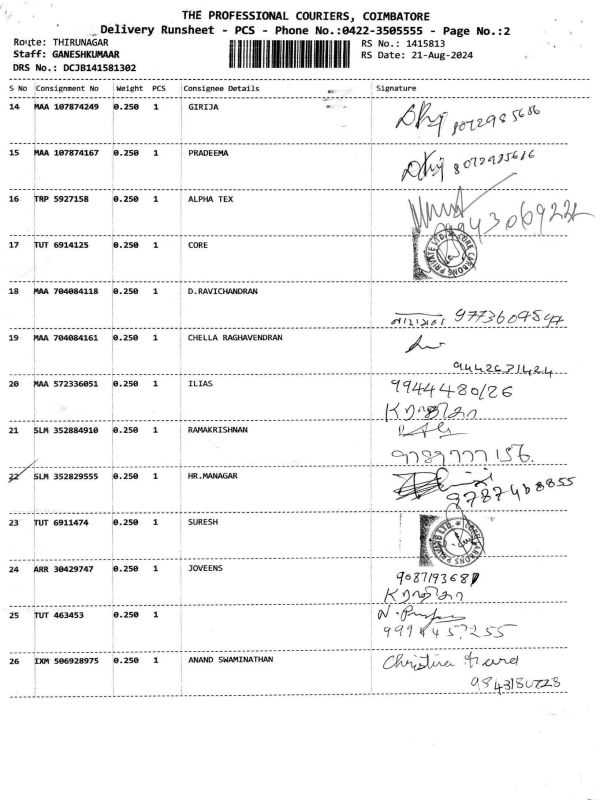 THE PROFESSIONAL COURIERS, COIMBATORE
Delivery Runsheet - PCS - Phone No.:0422-3505555 - Page No.:2
Route: THIRUNAGAR RS No.: 1415813
Staff: GANESHKUMAAR RS Date: 21-Aug-2024
DRS No.: DCJB141581302
S No Consignment No Weight PCS Consignee Details Signature
14 MAA 107874249 0.250 1 GIRIJA
8072985686
15 MAA 107874167 0.250 1 PRADEEMA
16 TRP 5927158 0.250 1 ALPHA TEX
17 TUT 6914125 0.250 1 CORE
CORE CARBONS PRIVATE LTD.
18 MAA 704084118 0.250 1 D.RAVICHANDRAN
19 MAA 704084161 0.250 1 CHELLA RAGHAVENDRAN
20 MAA 572336051 0.250 1 ILIAS
21 SLM 352884910 0.250 1 RAMAKRISHNAN
9789777156.
22 SLM 352829555 0.250 1 HR.MANAGAR
23 TUT 6911474 0.250 1 SURESH
CORE CARBONS PRIVATE LTD.
24 ARR 30429747 0.250 1 JOVEENS
25 TUT 463453 0.250 1
26 IXM 506928975 0.250 1 ANAND SWAMINATHAN
Christina